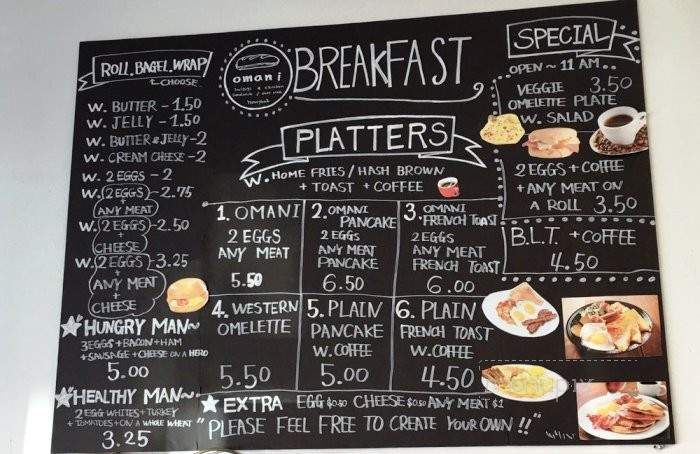 ROLL, BAGEL, WRAP
CHOOSE
W. BUTTER - 1.50
W. JELLY - 1.50
W. BUTTER & JELLY - 2
W. CREAM CHEESE - 2
W. 2 EGGS - 2
W. (2 EGGS) - 2.75
+
ANY MEAT
W. (2 EGGS) - 2.50
+
CHEESE
W. (2 EGGS) - 3.25
+
ANY MEAT
+
CHEESE
HUNGRY MAN~
3 EGGS + BACON + HAM
+ SAUSAGE + CHEESE ON A HERO
5.00
HEALTHY MAN~
2 EGG WHITES + TURKEY
+ TOMATOES + ON A WHOLE WHEAT
3.25
omani
BREAKFAST
PLATTERS
W. HOME FRIES / HASH BROWN
+ TOAST + COFFEE
1. OMANI
2 EGGS
ANY MEAT
5.50
2. OMANI
PANCAKE
2 EGGS
ANY MEAT
PANCAKE
6.50
3. OMANI
FRENCH TOAST
2 EGGS
ANY MEAT
FRENCH TOAST
6.00
4. WESTERN
OMELETTE
5.50
5. PLAIN
PANCAKE
W. COFFEE
5.00
6. PLAIN
FRENCH TOAST
W. COFFEE
4.50
EXTRA EGG $0.50 CHEESE $0.50 ANY MEAT $1
"PLEASE FEEL FREE TO CREATE YOUR OWN !!"
SPECIAL
OPEN ~ 11 AM..
VEGGIE 3.50
OMELETTE PLATE
W. SALAD
2 EGGS + COFFEE
+ ANY MEAT ON
A ROLL 3.50
B.L.T. + COFFEE
4.50